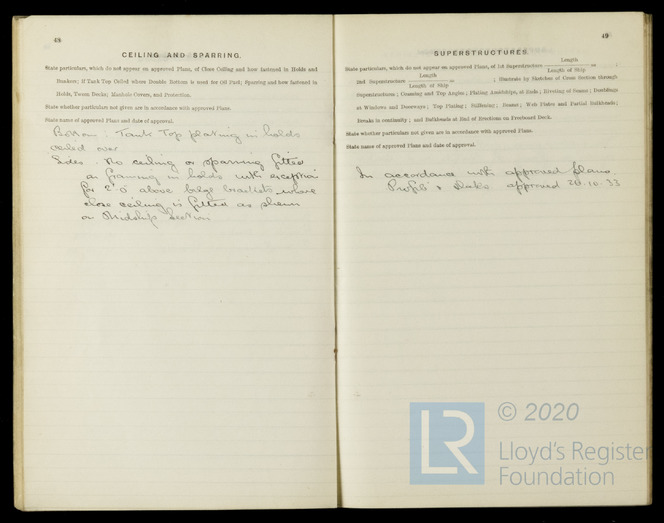 49
CEILING AND SPARRING.
State particulars, which do not appear on approved Plans, of Close Ceiling and how fastened in Holds and
Bunkers; if Tank Top Ceiled where Double Bottom is used for Oil Fuel; Sparring and how fastened in
Holds, Tween Decks; Manhole Covers, and Protection.
State whether particulars not given are in accordance with approved Plans.
State name of approved Plans and date of approval.
Bottom. Tank Top plating in holds
ceiled over
Sides. No ceiling or sparring fitted
on framing in holds with exception
for 2'0" above bilge brackets where
close ceiling is fitted as shewn
on Midship Section
49
SUPERSTRUCTURES.
State particulars, which do not appear on approved Plans, of 1st Superstructure Length / Length of Ship = ;
2nd Superstructure Length / Length of Ship = ; Illustrate by Sketches of Cross Section through
Superstructures; Coaming and Top Angles; Plating Amidships, at Ends; Riveting of Seams; Doublings
at Windows and Doorways; Top Plating; Stiffening; Beams; Web Plates and Partial Bulkheads;
Breaks in continuity; and Bulkheads at End of Erections on Freeboard Deck.
State whether particulars not given are in accordance with approved Plans.
State name of approved Plans and date of approval.
In accordance with approved plans
Profile & Decks approved 20.10.33
LR
© 2020
Lloyd's Register
Foundation